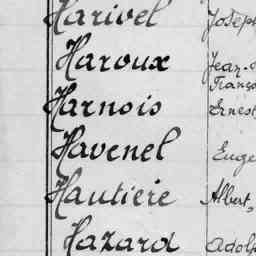 Harivel Joseph
Haroux Jean-
Franço
Harnois Ernest
Havenel Euge
Hautiere Albert,
Hazard Adolp